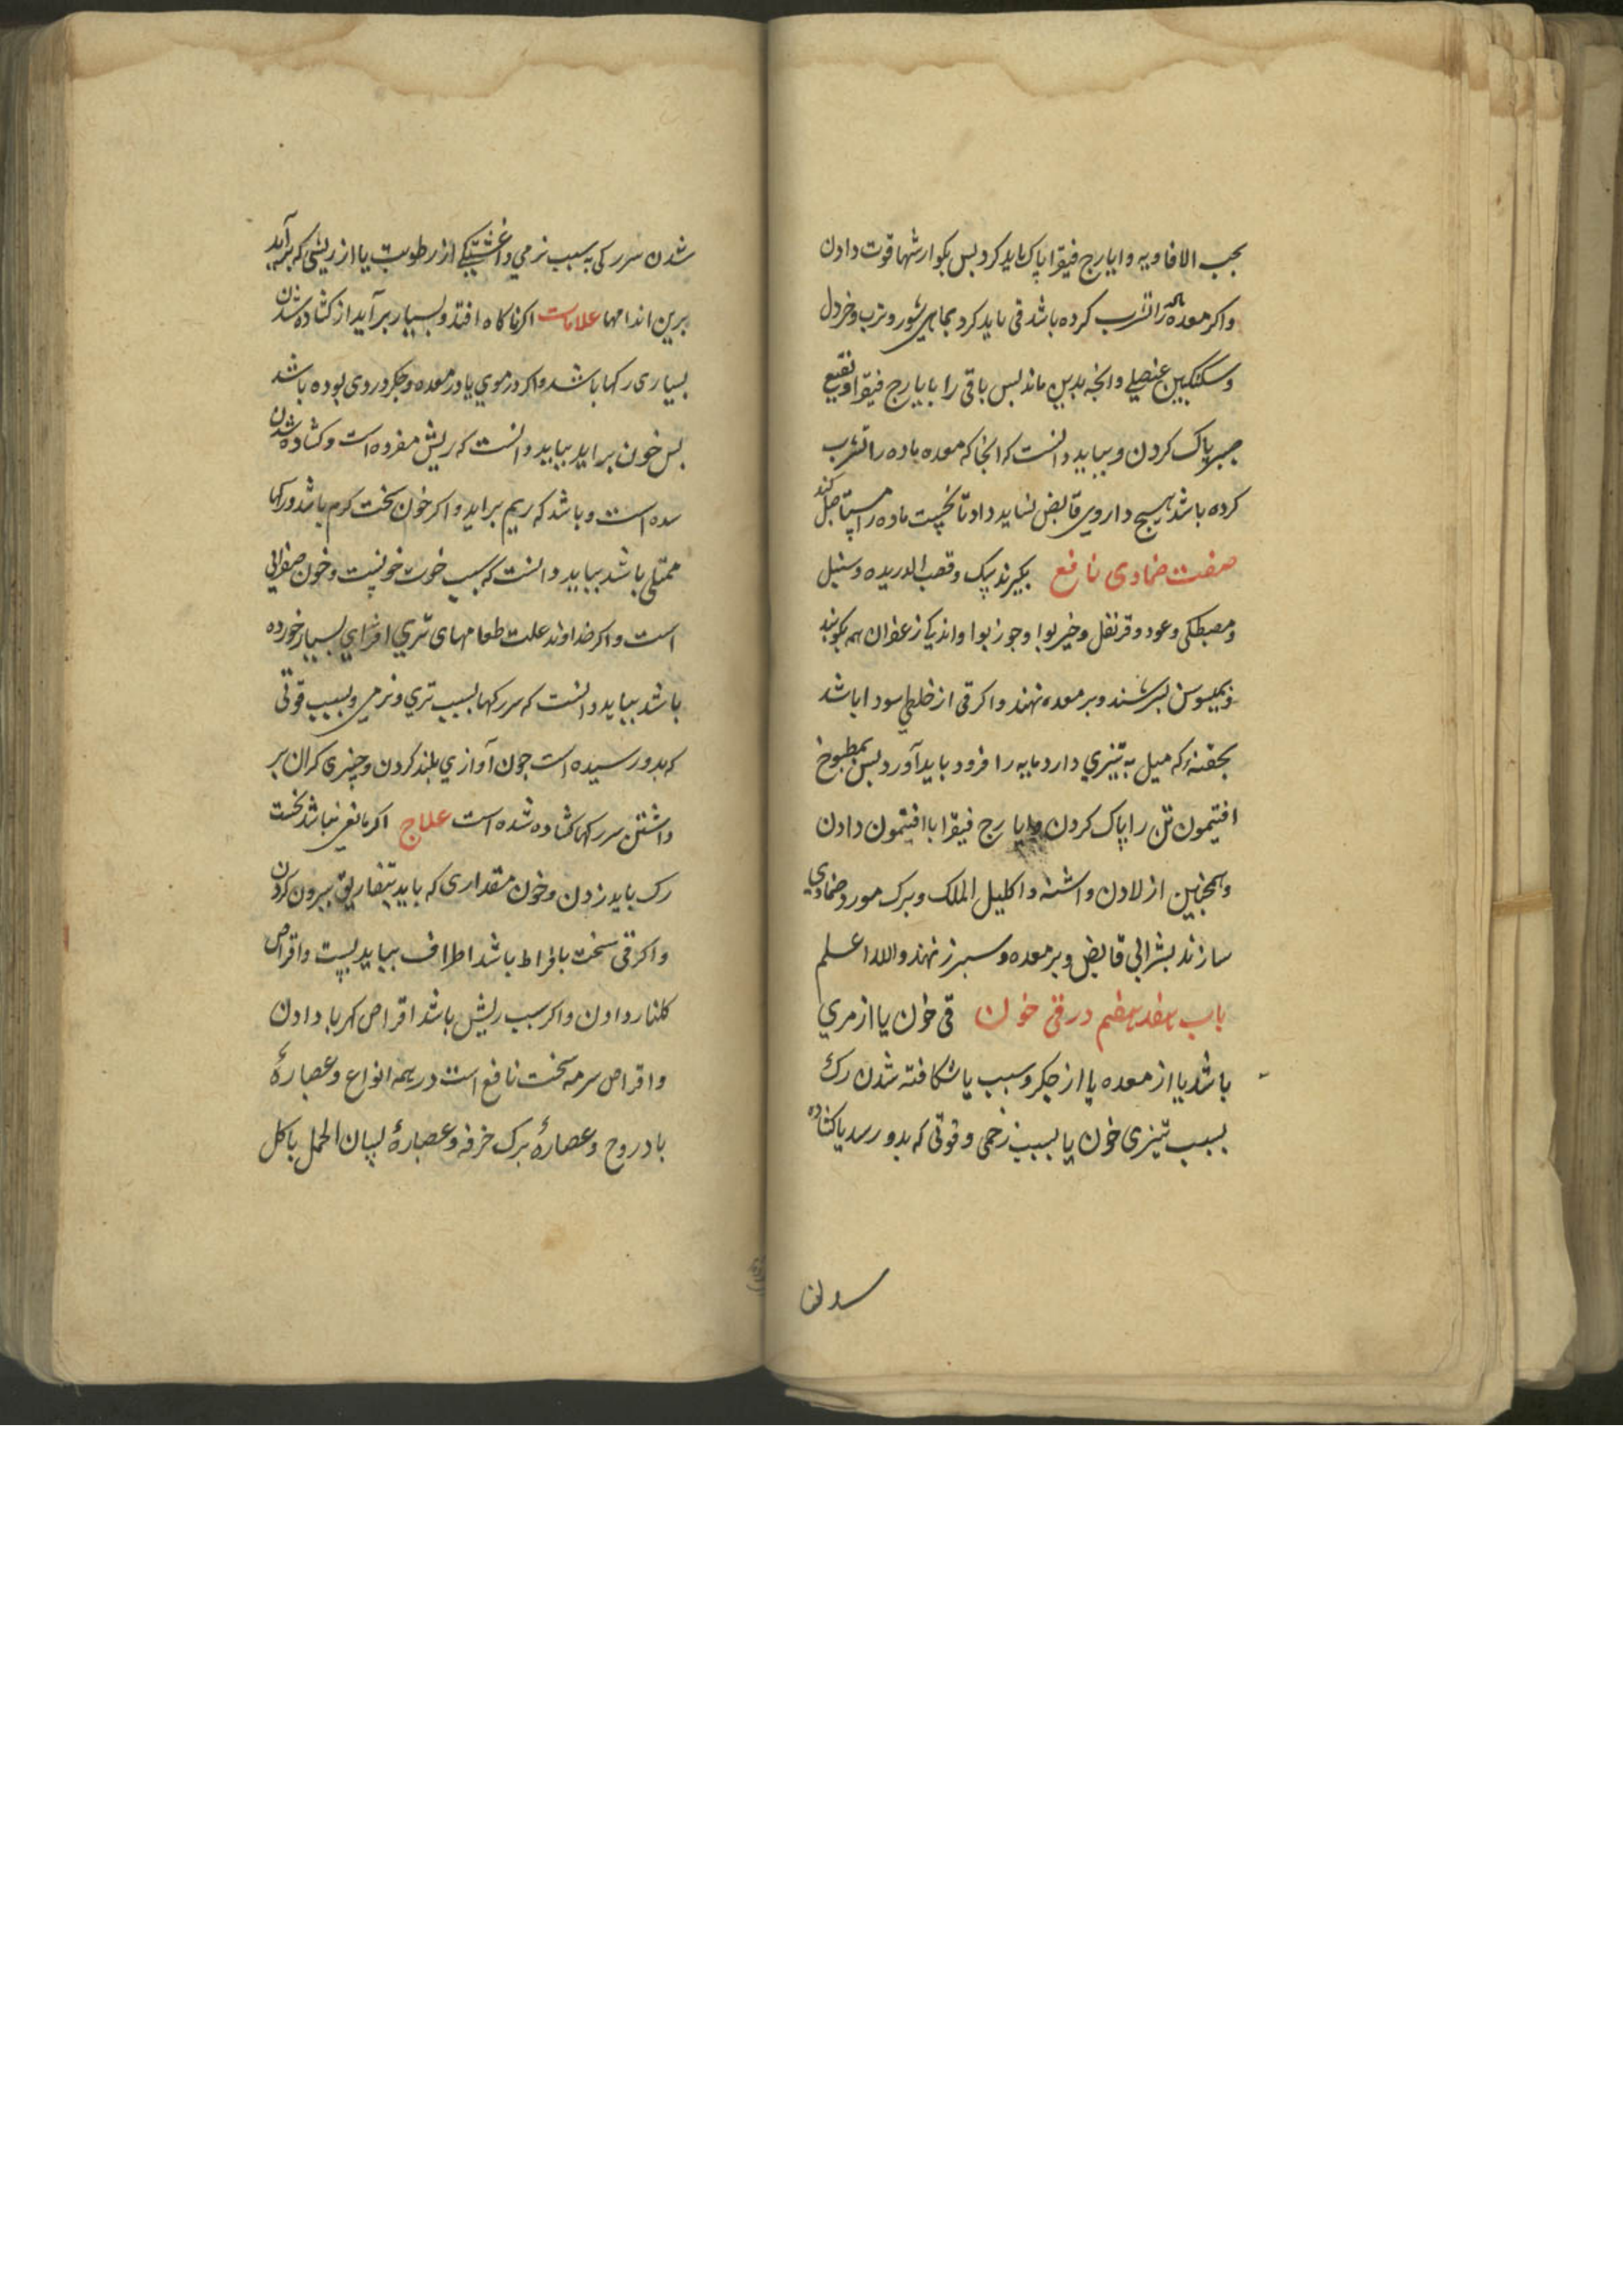 بحب الافاویه و ایارج فیقرا پاک باید کرد بس بکوارشها قوت دادن
و اکر معده ماده را تشرب کرده باشد قی باید کرد بماهی شور و ترب و خردل
و سکنکبین عنصلی و انجه بدین ماند بس باقی را بایارج فیقرا و نقیع
صبر پاک کردن و بباید دانست که انجا که معده ماده را تشرب
کرده باشد هیچ داروی قابض نشاید داد تا نخست ماده را مستاصل کند
صفت ضمادی نافع بکیرند سک و قصب الدریده و سنبل
و مصطکی و عود و قرنفل و خیربوا و جوزبوا و اندکی زعفران همه بکوبند
و بمیسوسن بسرشند و بر معده نهند و اکر قی از خلطی سودا باشد
بحقنهٔ که میل به تیزی دارد مایه را فرود باید آورد بس بمطبوخ
افتیمون تن را پاک کردن و ایارج فیقرا با افتیمون دادن
و همجنین از لادن و اشنه و اکلیل الملک و برک مورد ضمادی
سازند بشرابی قابض و بر معده و سبرز نهند والله اعلم
باب هفدهم در قی خون قی خون یا از مری
باشد یا از معده یا از جکر و سبب یا شکافته شدن رک
بسبب تیزی خون یا بسبب زخمی و قوتی که بدو رسد یا کشاده
شدن سر رکی به سبب نرمی و اغشتکی از رطوبت یا از ریشی که برآید
برین اندامها علامات اکر ناکاه افتد و بسیار برآید از کشاده شدن
بسیاری رکها باشد و اکر در موی یا در معده و جکر دردی بوده باشد
بس خون براید بباید دانست که ریش مفرده است و کشاده شدن
سده است و باشد که ریم براید و اکر خون سخت کرم باشد و رکها
ممتلی باشد بباید دانست که سبب خون خونیست و خون صفرائی
است و اکر خداوند علت طعامهای تری افزای بسیار خورده
باشد بباید دانست که سر رکها بسبب تری و نرمی و بسبب قوتی
که بدو رسیده است جون آوازی بلند کردن و چیزی کران بر
داشتن سر رکها کشاده شده است علاج اکر مانعی نباشد نخست
رک باید زدن و خون مقداری که باید بتفاریق بیرون کردن
و اکر قی سخت بافراط باشد اطراف بباید بست و اقراص
کلنار دادن و اکر سبب ریش باشد اقراص کهربا دادن
و اقراص سرمه سخت نافع است در همه انواع و عصارهٔ
بادروج و عصارهٔ برک خرفه و عصارهٔ لسان الحمل با کل